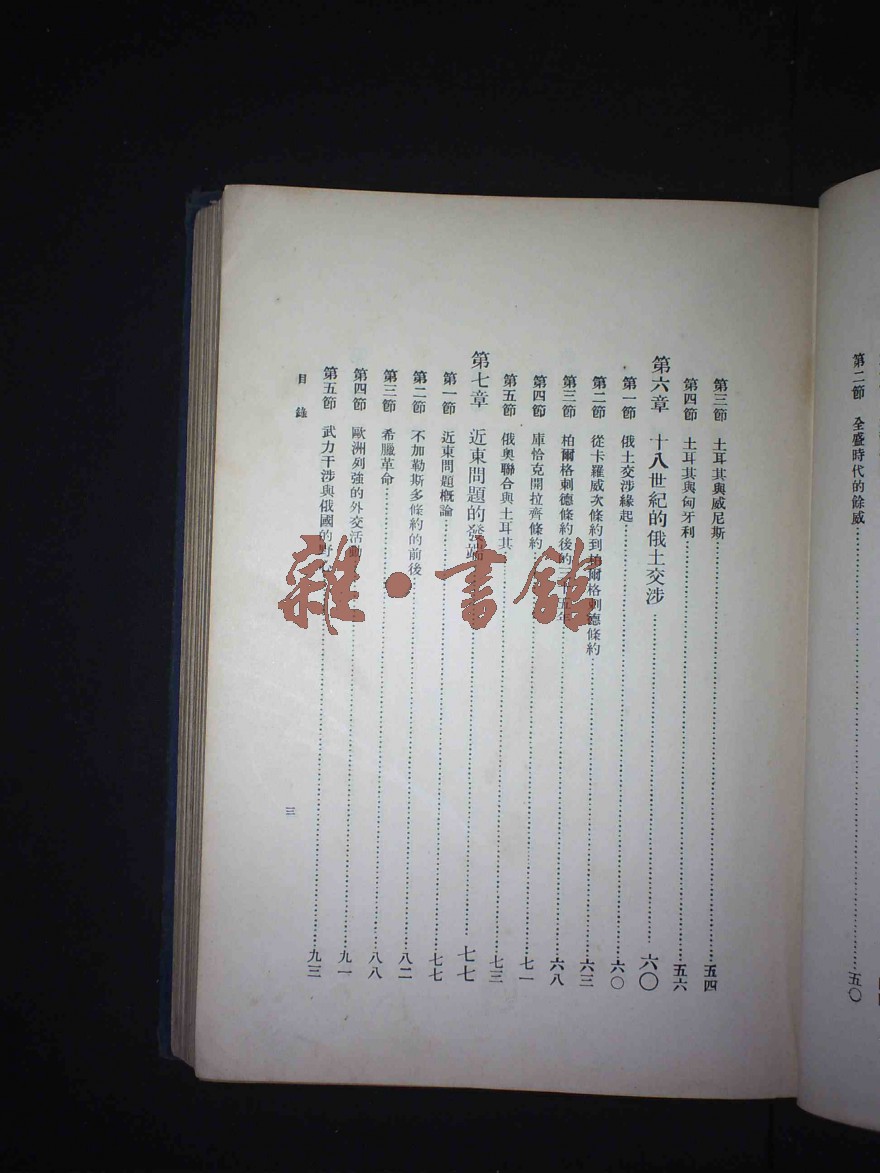 第二節　全盛時代的餘威……五〇
第三節　土耳其與威尼斯……五四
第四節　土耳其與匈牙利……五六
第六章　十八世紀的俄土交涉……六〇
第一節　俄土交涉緣起……六〇
第二節　從卡羅威次條約到柏爾格剌德條約……六三
第三節　柏爾格剌德條約後的三十五年……六八
第四節　庫恰克開拉齊條約……七一
第五節　俄奧聯合與土耳其……七三
第七章　近東問題的發端……七七
第一節　近東問題概論……七七
第二節　不加勒斯多條約的前後……八二
第三節　希臘革命……八八
第四節　歐洲列強的外交活動……九一
第五節　武力干涉與俄國的野心……九三
目錄
三
雜·書館